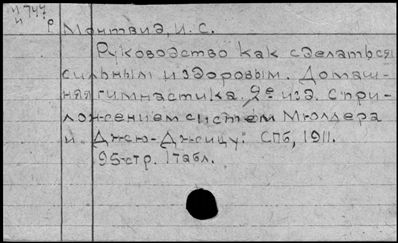 И 747
н р
Монтвид, И. С.
Руководство как сделаться
сильным и здоровым. Домаш-
няя гимнастика. 2е изд. с при-
ложением систем Мюллера
и „Джсю-Джицу". СПб, 1911.
95 стр. 1 табл.